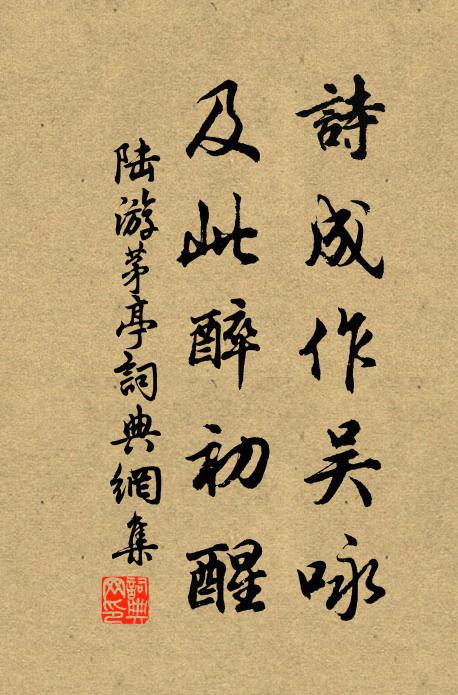 詩成作吴咏
及此醉初醒
陸游茅亭詞典網集
詞典
网印